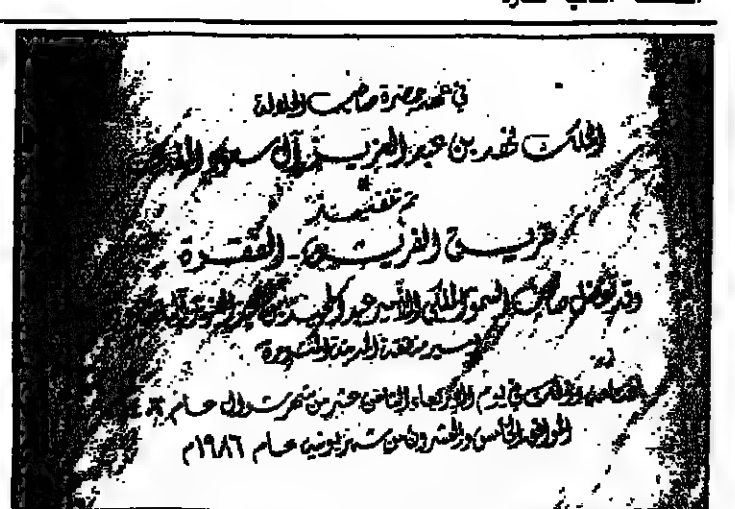 في عهد حضرة صاحب الجلالة
الملك فهد بن عبد العزيز آل سعود المفدى
تم تنفيذ
طريق الفريش - الفقرة
وقد تفضل صاحب السمو الملكي الأمير عبد المجيد بن عبد العزيز
أمير منطقة المدينة المنورة
وذلك في يوم الأربعاء الثامن عشر من شهر شوال عام
الموافق الخامس والعشرون من شهر يونيه عام ١٩٨٦م